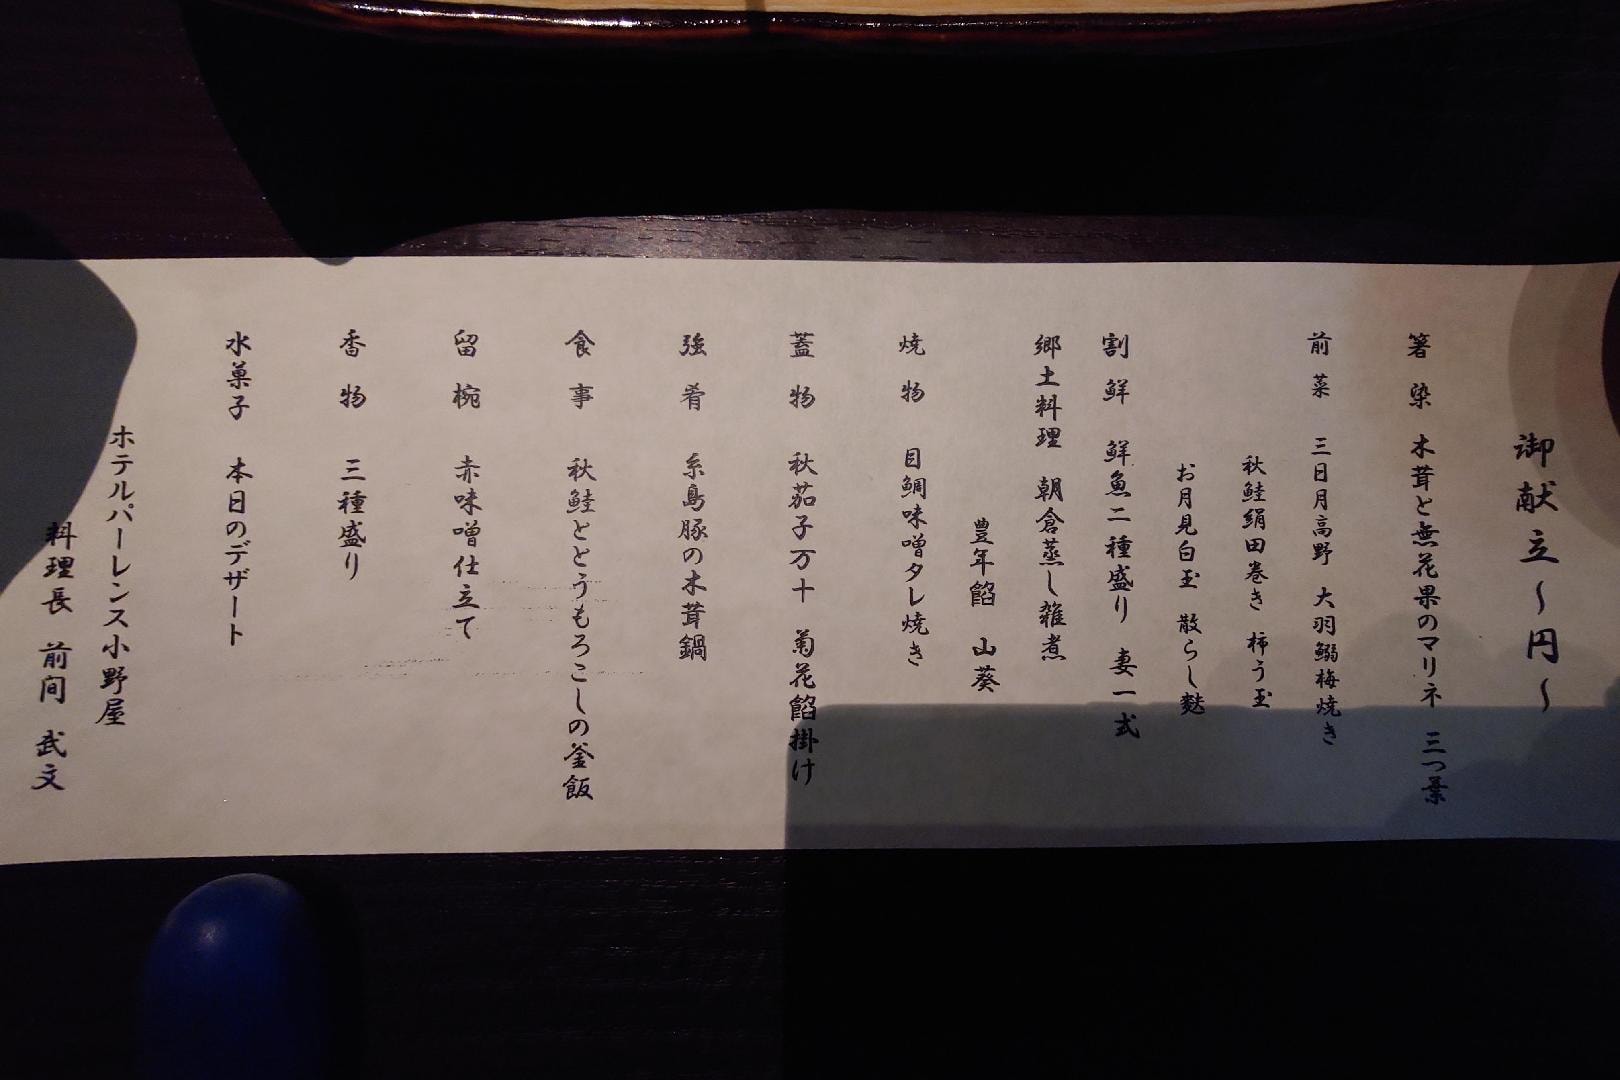 御献立〜円〜
箸染 木茸と無花果のマリネ 三つ葉
前菜 三日月高野 大羽鰯梅焼き
秋鮭絹田巻き 柿う玉
お月見白玉 散らし麩
割鮮 鮮魚二種盛り 妻一式
郷土料理 朝倉蒸し雑煮
豊年餡 山葵
焼物 目鯛味噌タレ焼き
蓋物 秋茄子万十 菊花餡掛け
強肴 糸島豚の木茸鍋
食事 秋鮭ととうもろこしの釜飯
留椀 赤味噌仕立て
香物 三種盛り
水菓子 本日のデザート
ホテルパーレンス小野屋
料理長 前間 武文